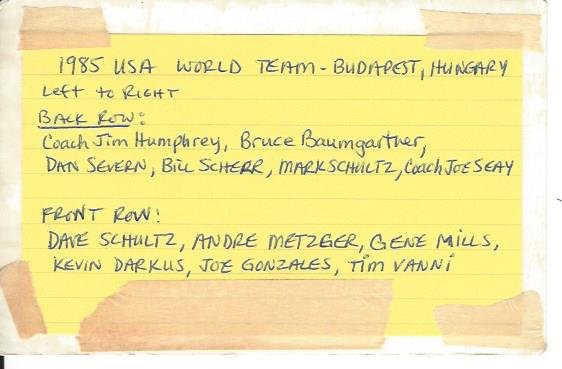 1985 USA WORLD TEAM - BUDAPEST, HUNGARY
Left to Right
BACK ROW:
Coach Jim Humphrey, Bruce Baumgartner,
DAN SEVERN, Bill SCHERR, MARK SCHULTZ, Coach JOE SEAY
FRONT ROW:
DAVE SCHULTZ, ANDRE METZGER, GENE MILLS,
KEVIN DARKUS, JOE GONZALES, TIM VANNI